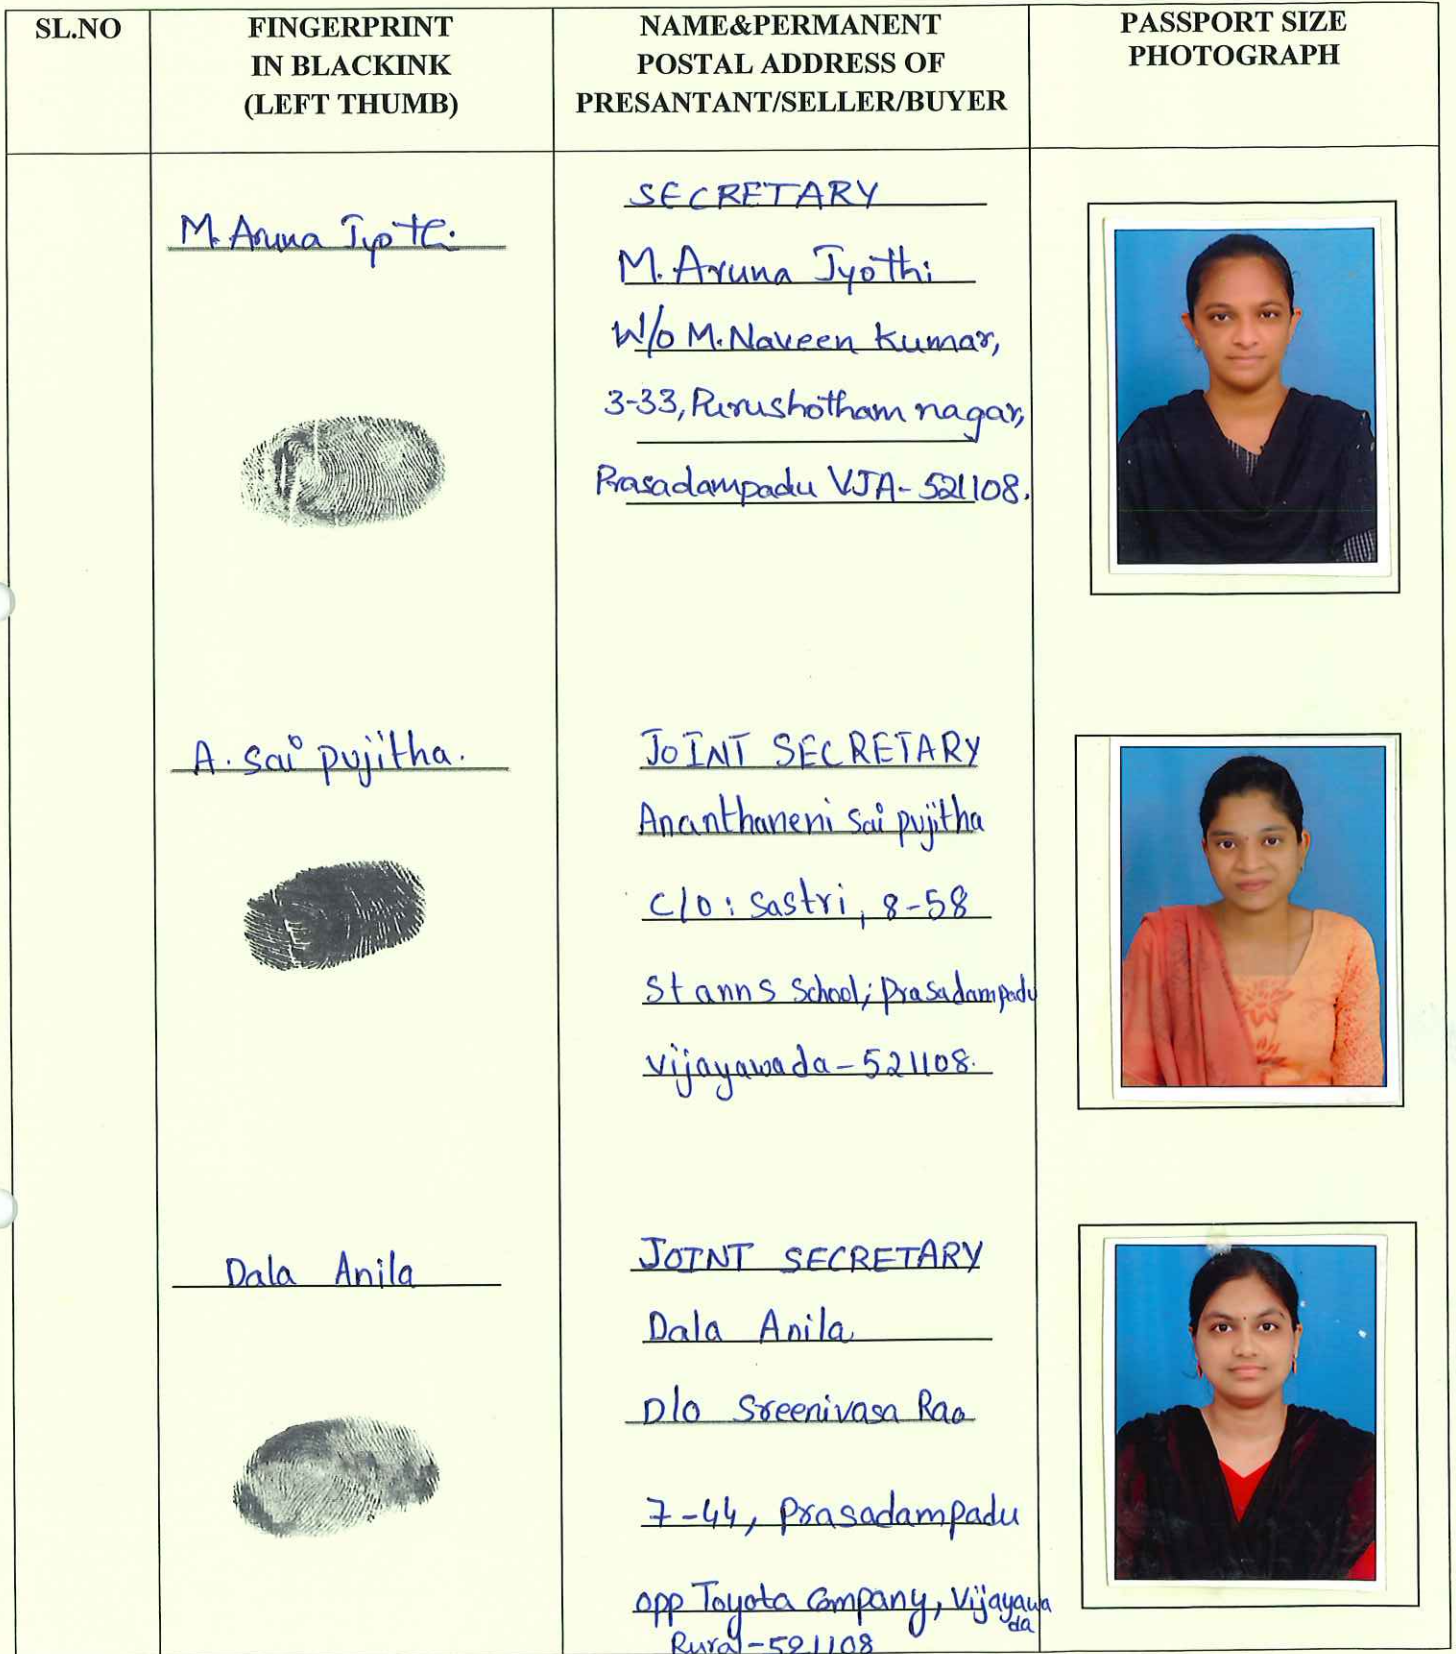 SL.NO
FINGERPRINT
IN BLACKINK
(LEFT THUMB)
NAME&PERMANENT
POSTAL ADDRESS OF
PRESANTANT/SELLER/BUYER
PASSPORT SIZE
PHOTOGRAPH
M. Aruna Jyothi
SECRETARY
M. Aruna Jyothi
W/o M. Naveen Kumar,
3-33, Purushotham nagar,
Prasadampadu VJA- 521108.
A. Sai pujitha.
JOINT SECRETARY
Ananthaneni Sai pujitha
C/o: Sastri, 8-58
St anns School, prasadampadu
vijayawada-521108.
Dala Anila
JOINT SECRETARY
Dala Anila
D/o Sreenivasa Rao
7-44, Prasadampadu
opp Toyota Company, Vijayawa
da
Rural-521108